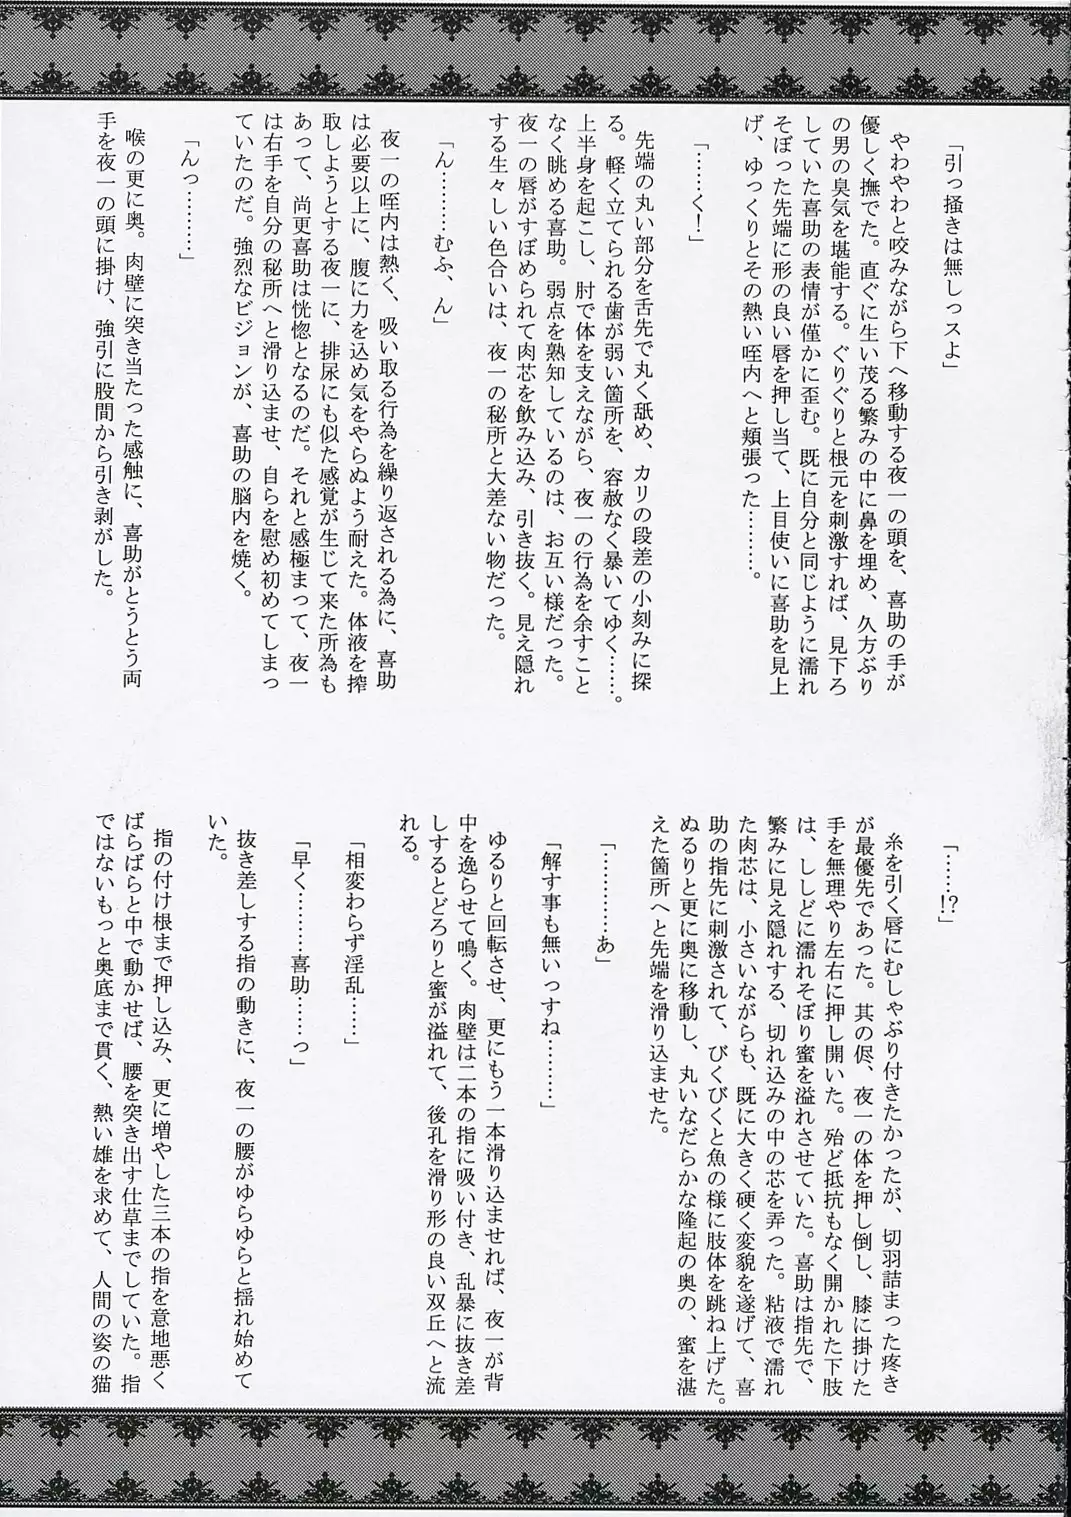 「引っ掻きは無しっスよ」
やわやわと咬みながら下へ移動する夜一の頭を、喜助の手が
優しく撫でた。直ぐに生い茂る繁みの中に鼻を埋め、久方ぶり
の男の臭気を堪能する。ぐりぐりと根元を刺激すれば、見下ろ
していた喜助の表情が僅かに歪む。既に自分と同じように濡れ
そぼった先端に形の良い唇を押し当て、上目使いに喜助を見上
げ、ゆっくりとその熱い咥内へと頬張った………。
「……く!」
先端の丸い部分を舌先で丸く舐め、カリの段差の小刻みに探
る。軽く立てられる歯が弱い箇所を、容赦なく暴いてゆく……。
上半身を起こし、肘で体を支えながら、夜一の行為を余すこと
なく眺める喜助。弱点を熟知しているのは、お互い様だった。
夜一の唇がすぼめられて肉芯を飲み込み、引き抜く。見え隠れ
する生々しい色合いは、夜一の秘所と大差ない物だった。
「ん………むふ、ん」
夜一の咥内は熱く、吸い取る行為を繰り返される為に、喜助
は必要以上に、腹に力を込め気をやらぬよう耐えた。体液を搾
取しようとする夜一に、排尿にも似た感覚が生じて来た所為も
あって、尚更喜助は恍惚となるのだ。それと感極まって、夜一
は右手を自分の秘所へと滑り込ませ、自らを慰め初めてしまっ
ていたのだ。強烈なビジョンが、喜助の脳内を焼く。
「んっ………」
喉の更に奥。肉壁に突き当たった感触に、喜助がとうとう両
手を夜一の頭に掛け、強引に股間から引き剥がした。
「……!?」
糸を引く唇にむしゃぶり付きたかったが、切羽詰まった疼き
が最優先であった。其の侭、夜一の体を押し倒し、膝に掛けた
手を無理やり左右に押し開いた。殆ど抵抗もなく開かれた下肢
は、ししどに濡れそぼり蜜を溢れさせていた。喜助は指先で、
繁みに見え隠れする、切れ込みの中の芯を弄った。粘液で濡れ
た肉芯は、小さいながらも、既に大きく硬く変貌を遂げて、喜
助の指先に刺激されて、びくびくと魚の様に肢体を跳ね上げた。
ぬるりと更に奥に移動し、丸いなだらかな隆起の奥の、蜜を湛
えた箇所へと先端を滑り込ませた。
「…………あ」
「解す事も無いっすね………」
ゆるりと回転させ、更にもう一本滑り込ませれば、夜一が背
中を逸らせて鳴く。肉壁は二本の指に吸い付き、乱暴に抜き差
しするとどろりと蜜が溢れて、後孔を滑り形の良い双丘へと流
れる。
「相変わらず淫乱……」
「早く………喜助……っ」
抜き差しする指の動きに、夜一の腰がゆらゆらと揺れ始めて
いた。
指の付け根まで押し込み、更に増やした三本の指を意地悪く
ばらばらと中で動かせば、腰を突き出す仕草までしていた。指
ではないもっと奥底まで貫く、熱い雄を求めて、人間の姿の猫